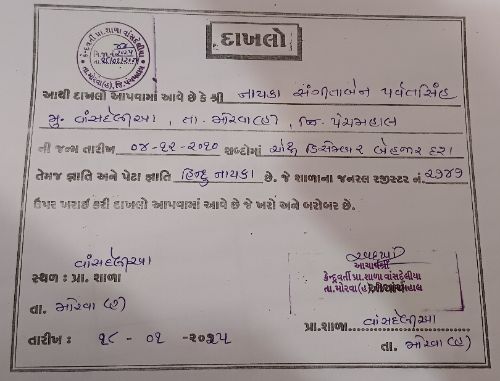 કેન્દ્રવર્તી પ્રા. શાળા વાંસદેલીયા
તા. મોરવા(હ), જિ. પંચમહાલ
દાખલો
આથી દાખલો આપવામાં આવે છે કે શ્રી નાયકા સંગીતાબેન પર્વતસિંહ
મુ. વાંસદેલીઆ, તા. મોરવા(હ), જિ. પંચમહાલ
ની જન્મ તારીખ ૦૪-૧૨-૨૦૧૦ શબ્દોમાં ચોથી ડિસેમ્બર બેહજાર દશ
તેમજ જ્ઞાતિ અને પેટા જ્ઞાતિ હિન્દુ નાયકા છે. જે શાળાના જનરલ રજીસ્ટર નં. ૨૭૪૭
ઉપર ખરાઈ કરી દાખલો આપવામાં આવે છે જે ખરો અને બરોબર છે.
વાંસદેલીઆ
સ્થળ : પ્રા. શાળા
તા. મોરવા (હ)
તારીખ : ૧૮ - ૦૧ - ૨૦૨૫
આચાર્યશ્રી
કેન્દ્રવર્તી પ્રા.શાળા વાંસદેલીયા
તા.મોરવા(હ)
પ્રા.શાળા વાંસદેલીઆ
તા. મોરવા (હ)